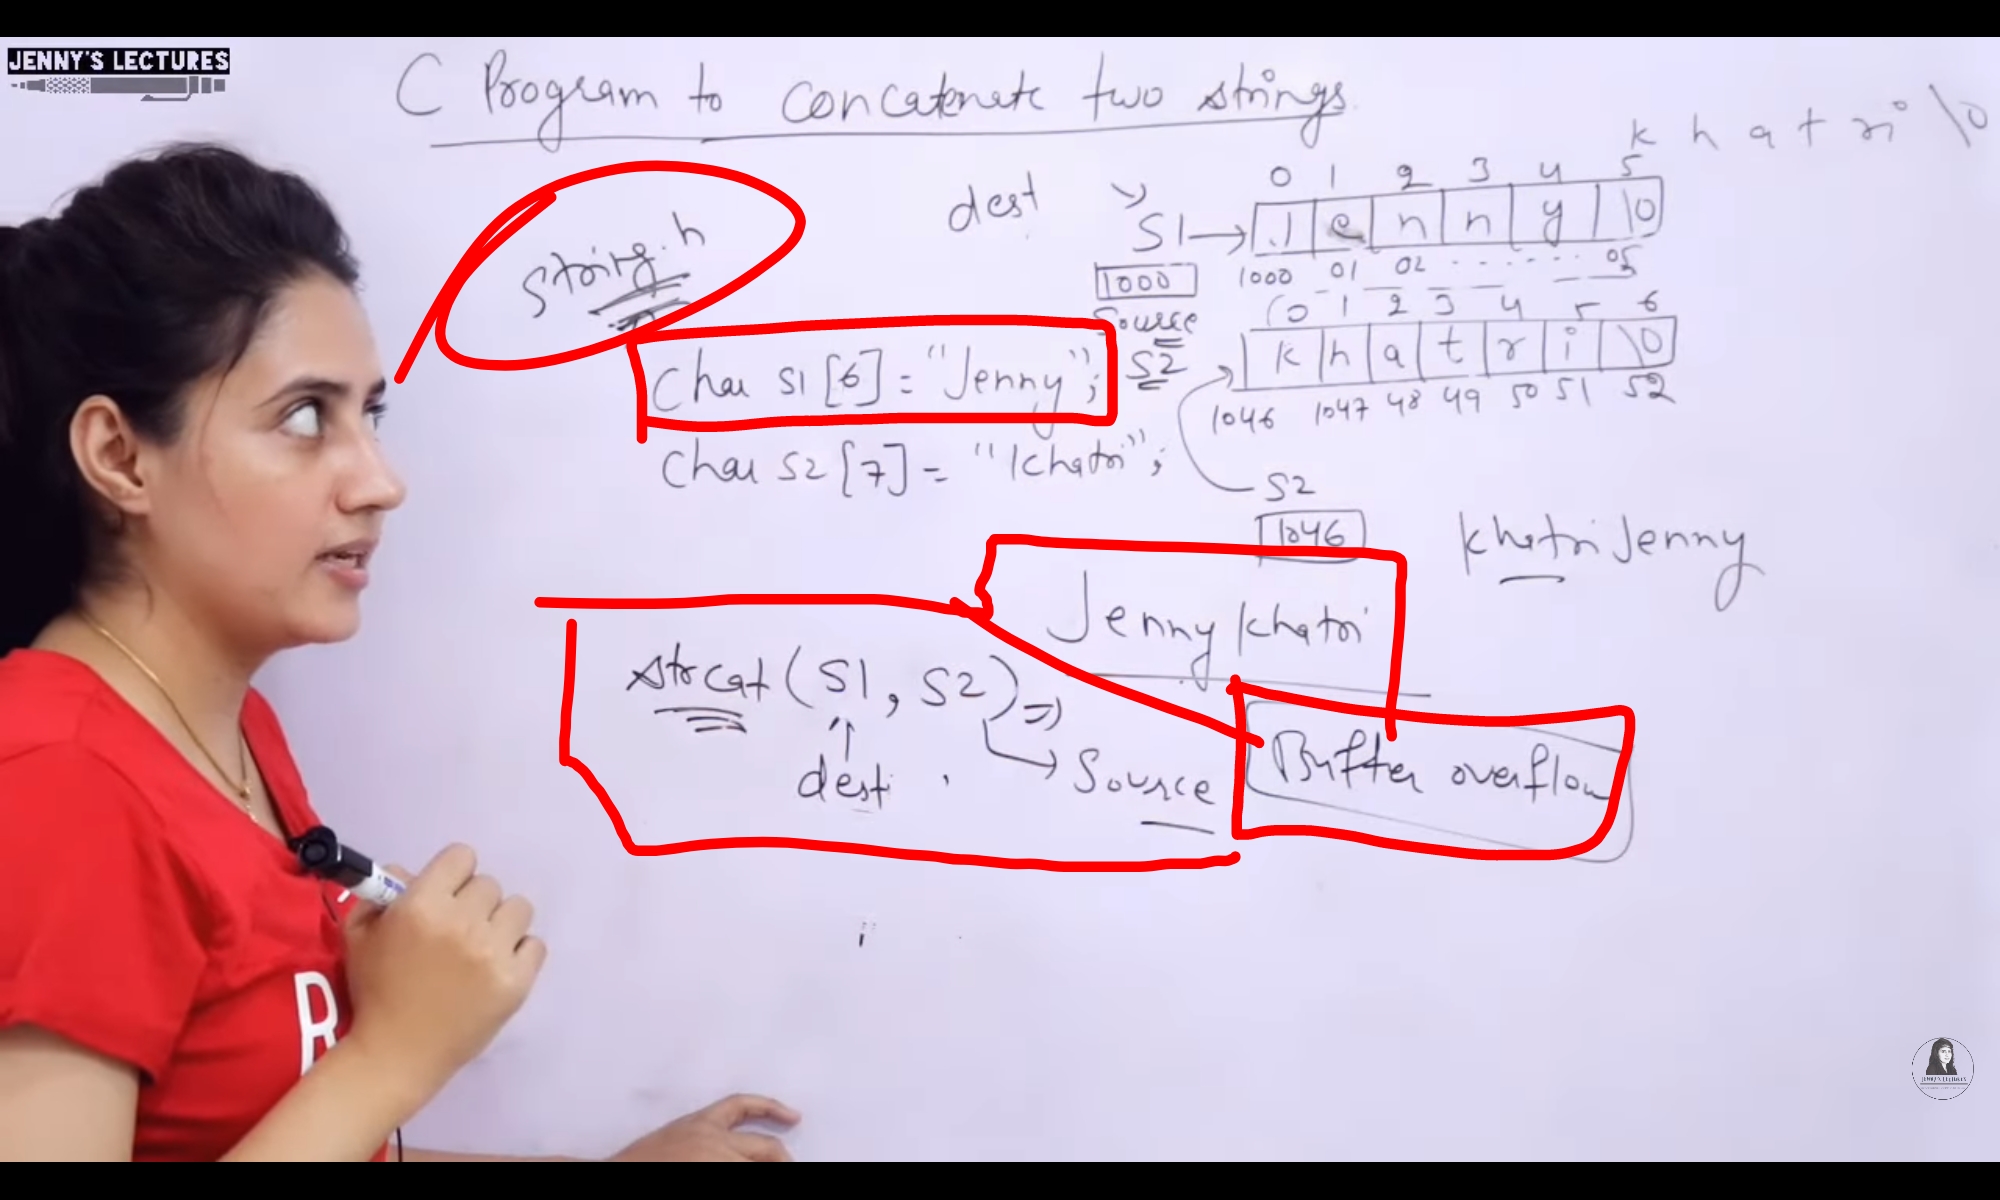 JENNY'S LECTURES
C Program to concatenate two strings
k h a t r i \0
string.h
dest
0 1 2 3 4 5
S1 → J e n n y \0
1000
1000 01 02 ....... 05
Source
S2
0 1 2 3 4 5 6
k h a t r i \0
1046 1047 48 49 50 51 52
char S1[6] = "Jenny";
char S2[7] = "Khatri";
S2
1046
Khatri Jenny
Jenny Khatri
strcat(S1, S2) ⇒
dest
Source
Buffer overflow
R